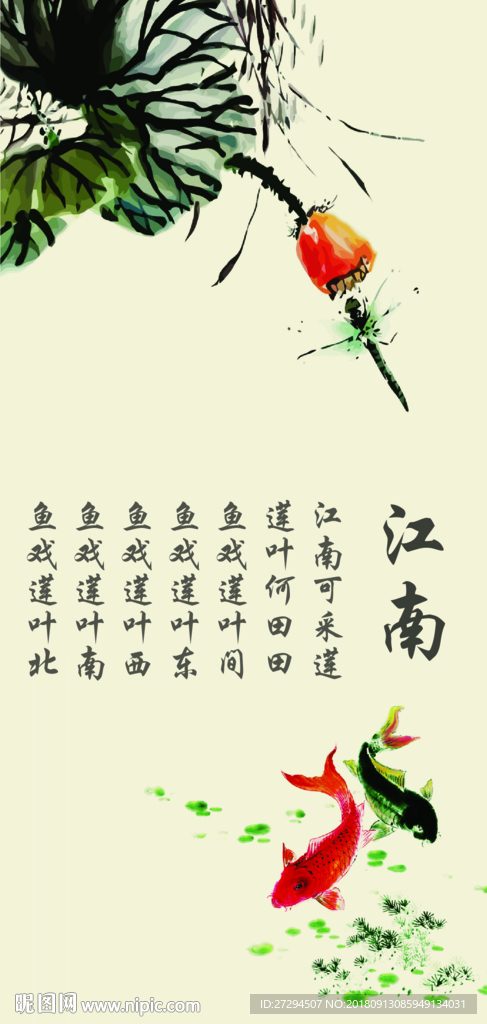 江南
江南可采莲
莲叶何田田
鱼戏莲叶间
鱼戏莲叶东
鱼戏莲叶西
鱼戏莲叶南
鱼戏莲叶北
昵图网 www.nipic.com
ID:27294507 NO:20180913085949134031